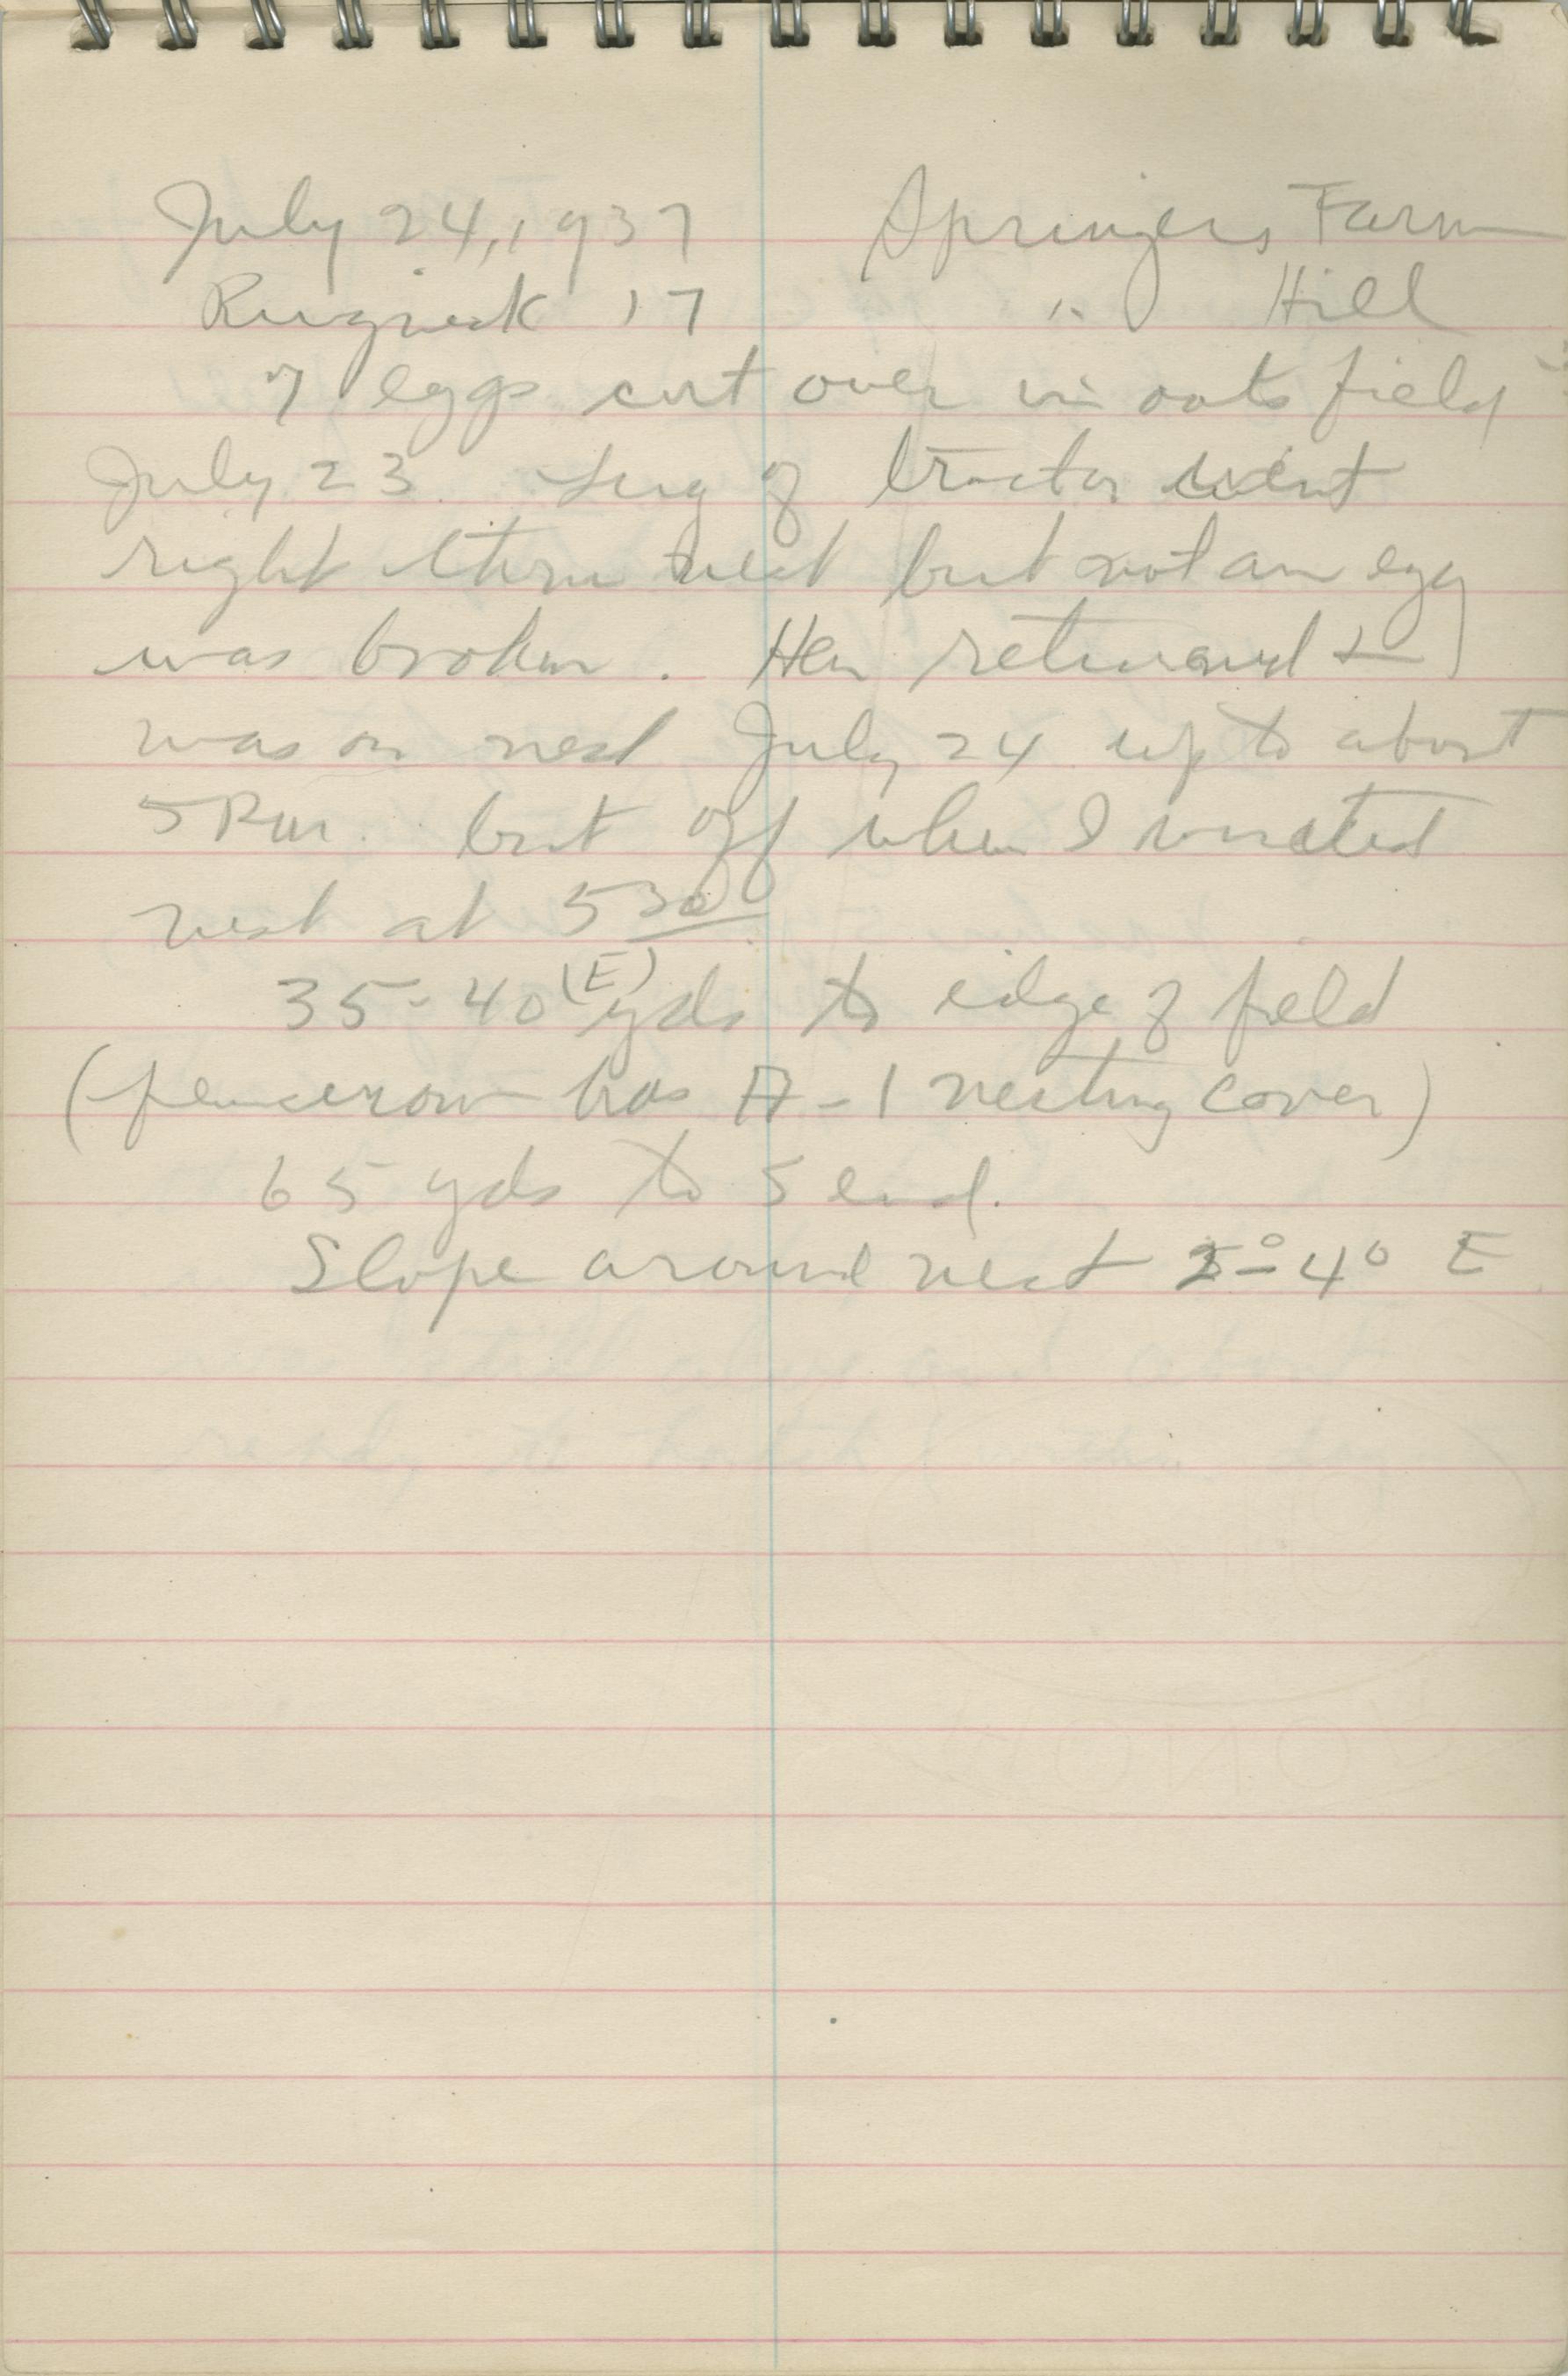 July 24, 1937 Springers Farm
Ringneck 17 " Hill
7 eggs cut over in oats field
July 23. Lug of tractor went
right thru nest but not an egg
was broken. Hen returned &
was on nest July 24 up to about
5 P.M. but off when I visited
nest at 5 30
35-40 (E) yds to edge of field
(fencerow has A-1 nesting cover)
65 yds to S end.
Slope around nest 3°-4° E